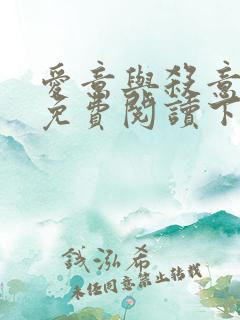 愛意與殺意
免費閱讀下
錢泓希
未經同意禁止轉載